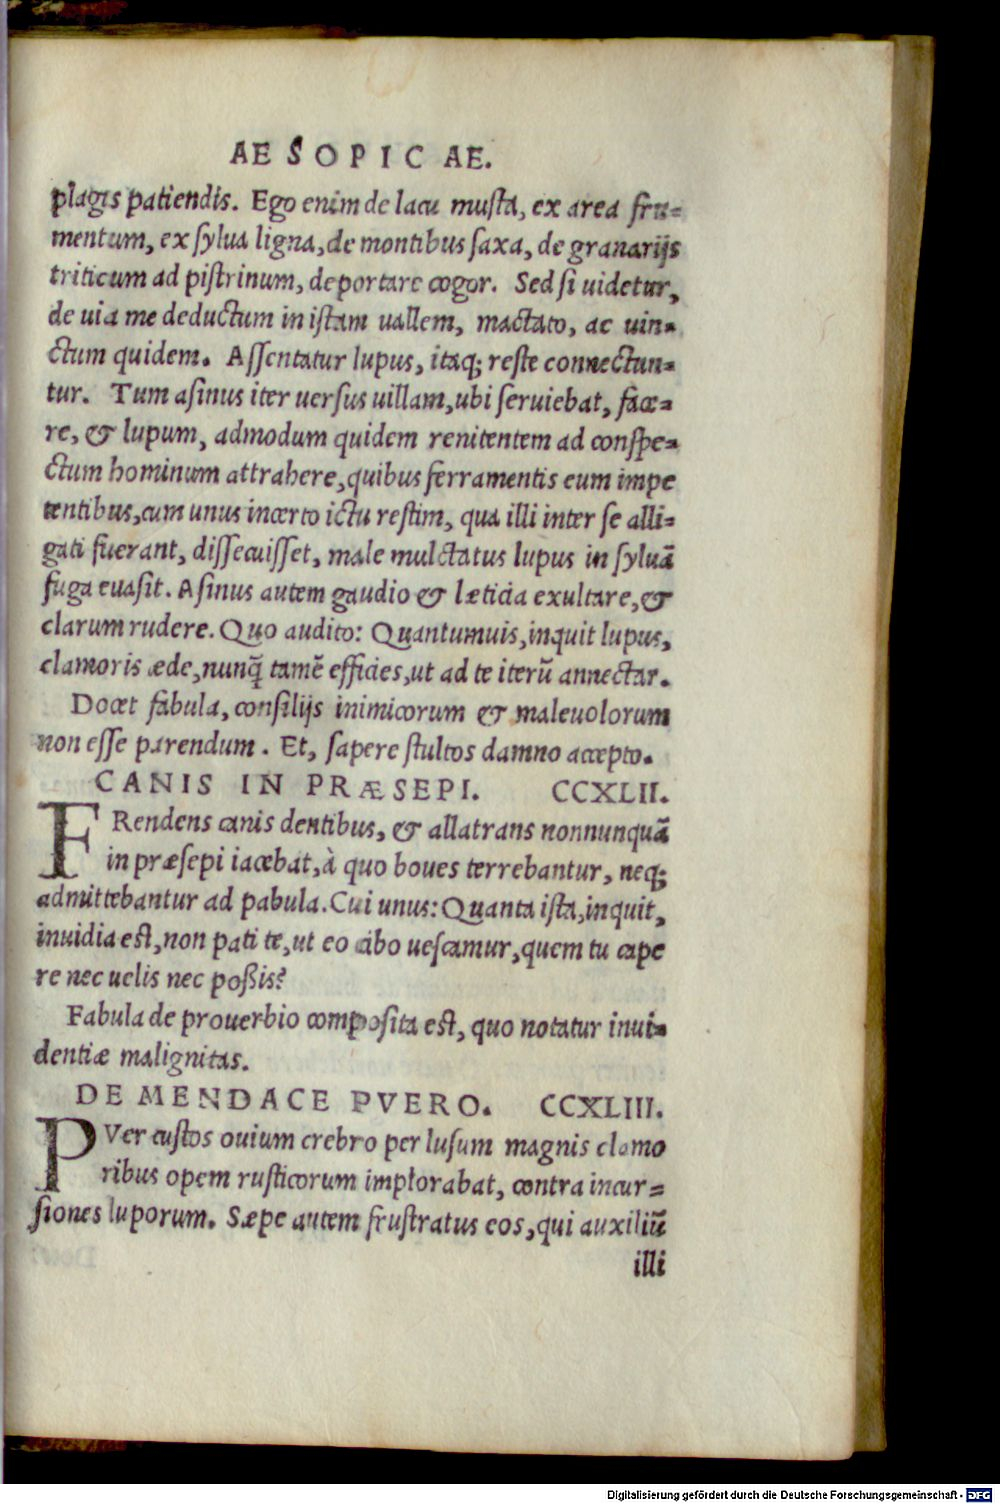 AESOPICAE.
plagis patiendis. Ego enim de lacu musta, ex area fru-
mentum, ex sylua ligna, de montibus saxa, de granarijs
triticum ad pistrinum, deportare cogor. Sed si uidetur,
de uia me deductum in istam uallem, mactato, ac uin-
ctum quidem. Assentatur lupus, itaq; reste connectun-
tur. Tum asinus iter uersus uillam, ubi seruiebat, face-
re, & lupum, admodum quidem renitentem ad conspe-
ctum hominum attrahere, quibus ferramentis eum impe
tentibus, cum unus incerto ictu restim, qua illi inter se alli-
gati fuerant, dissecuisset, male mulctatus lupus in syluã
fuga euasit. Asinus autem gaudio & læticia exultare, &
clarum rudere. Quo audito: Quantumuis, inquit lupus,
clamoris æde, nunq̃ tamẽ efficies, ut ad te iterũ annectar.
Docet fabula, consilijs inimicorum & maleuolorum
non esse parendum. Et, sapere stultos damno accepto.
CANIS IN PRÆSEPI. CCXLII.
FRendens canis dentibus, & allatrans nonnunquã
in præsepi iacebat, à quo boues terrebantur, neq;
admittebantur ad pabula. Cui unus: Quanta ista, inquit,
inuidia est, non pati te, ut eo cibo uescamur, quem tu cape
re nec uelis nec poßis?
Fabula de prouerbio composita est, quo notatur inui-
dentiæ malignitas.
DE MENDACE PVERO. CCXLIII.
PVer custos ouium crebro per lusum magnis clamo
ribus opem rusticorum implorabat, contra incur-
siones luporum. Sæpe autem frustratus eos, qui auxiliũ
illi
Digitalisierung gefördert durch die Deutsche Forschungsgemeinschaft - DFG